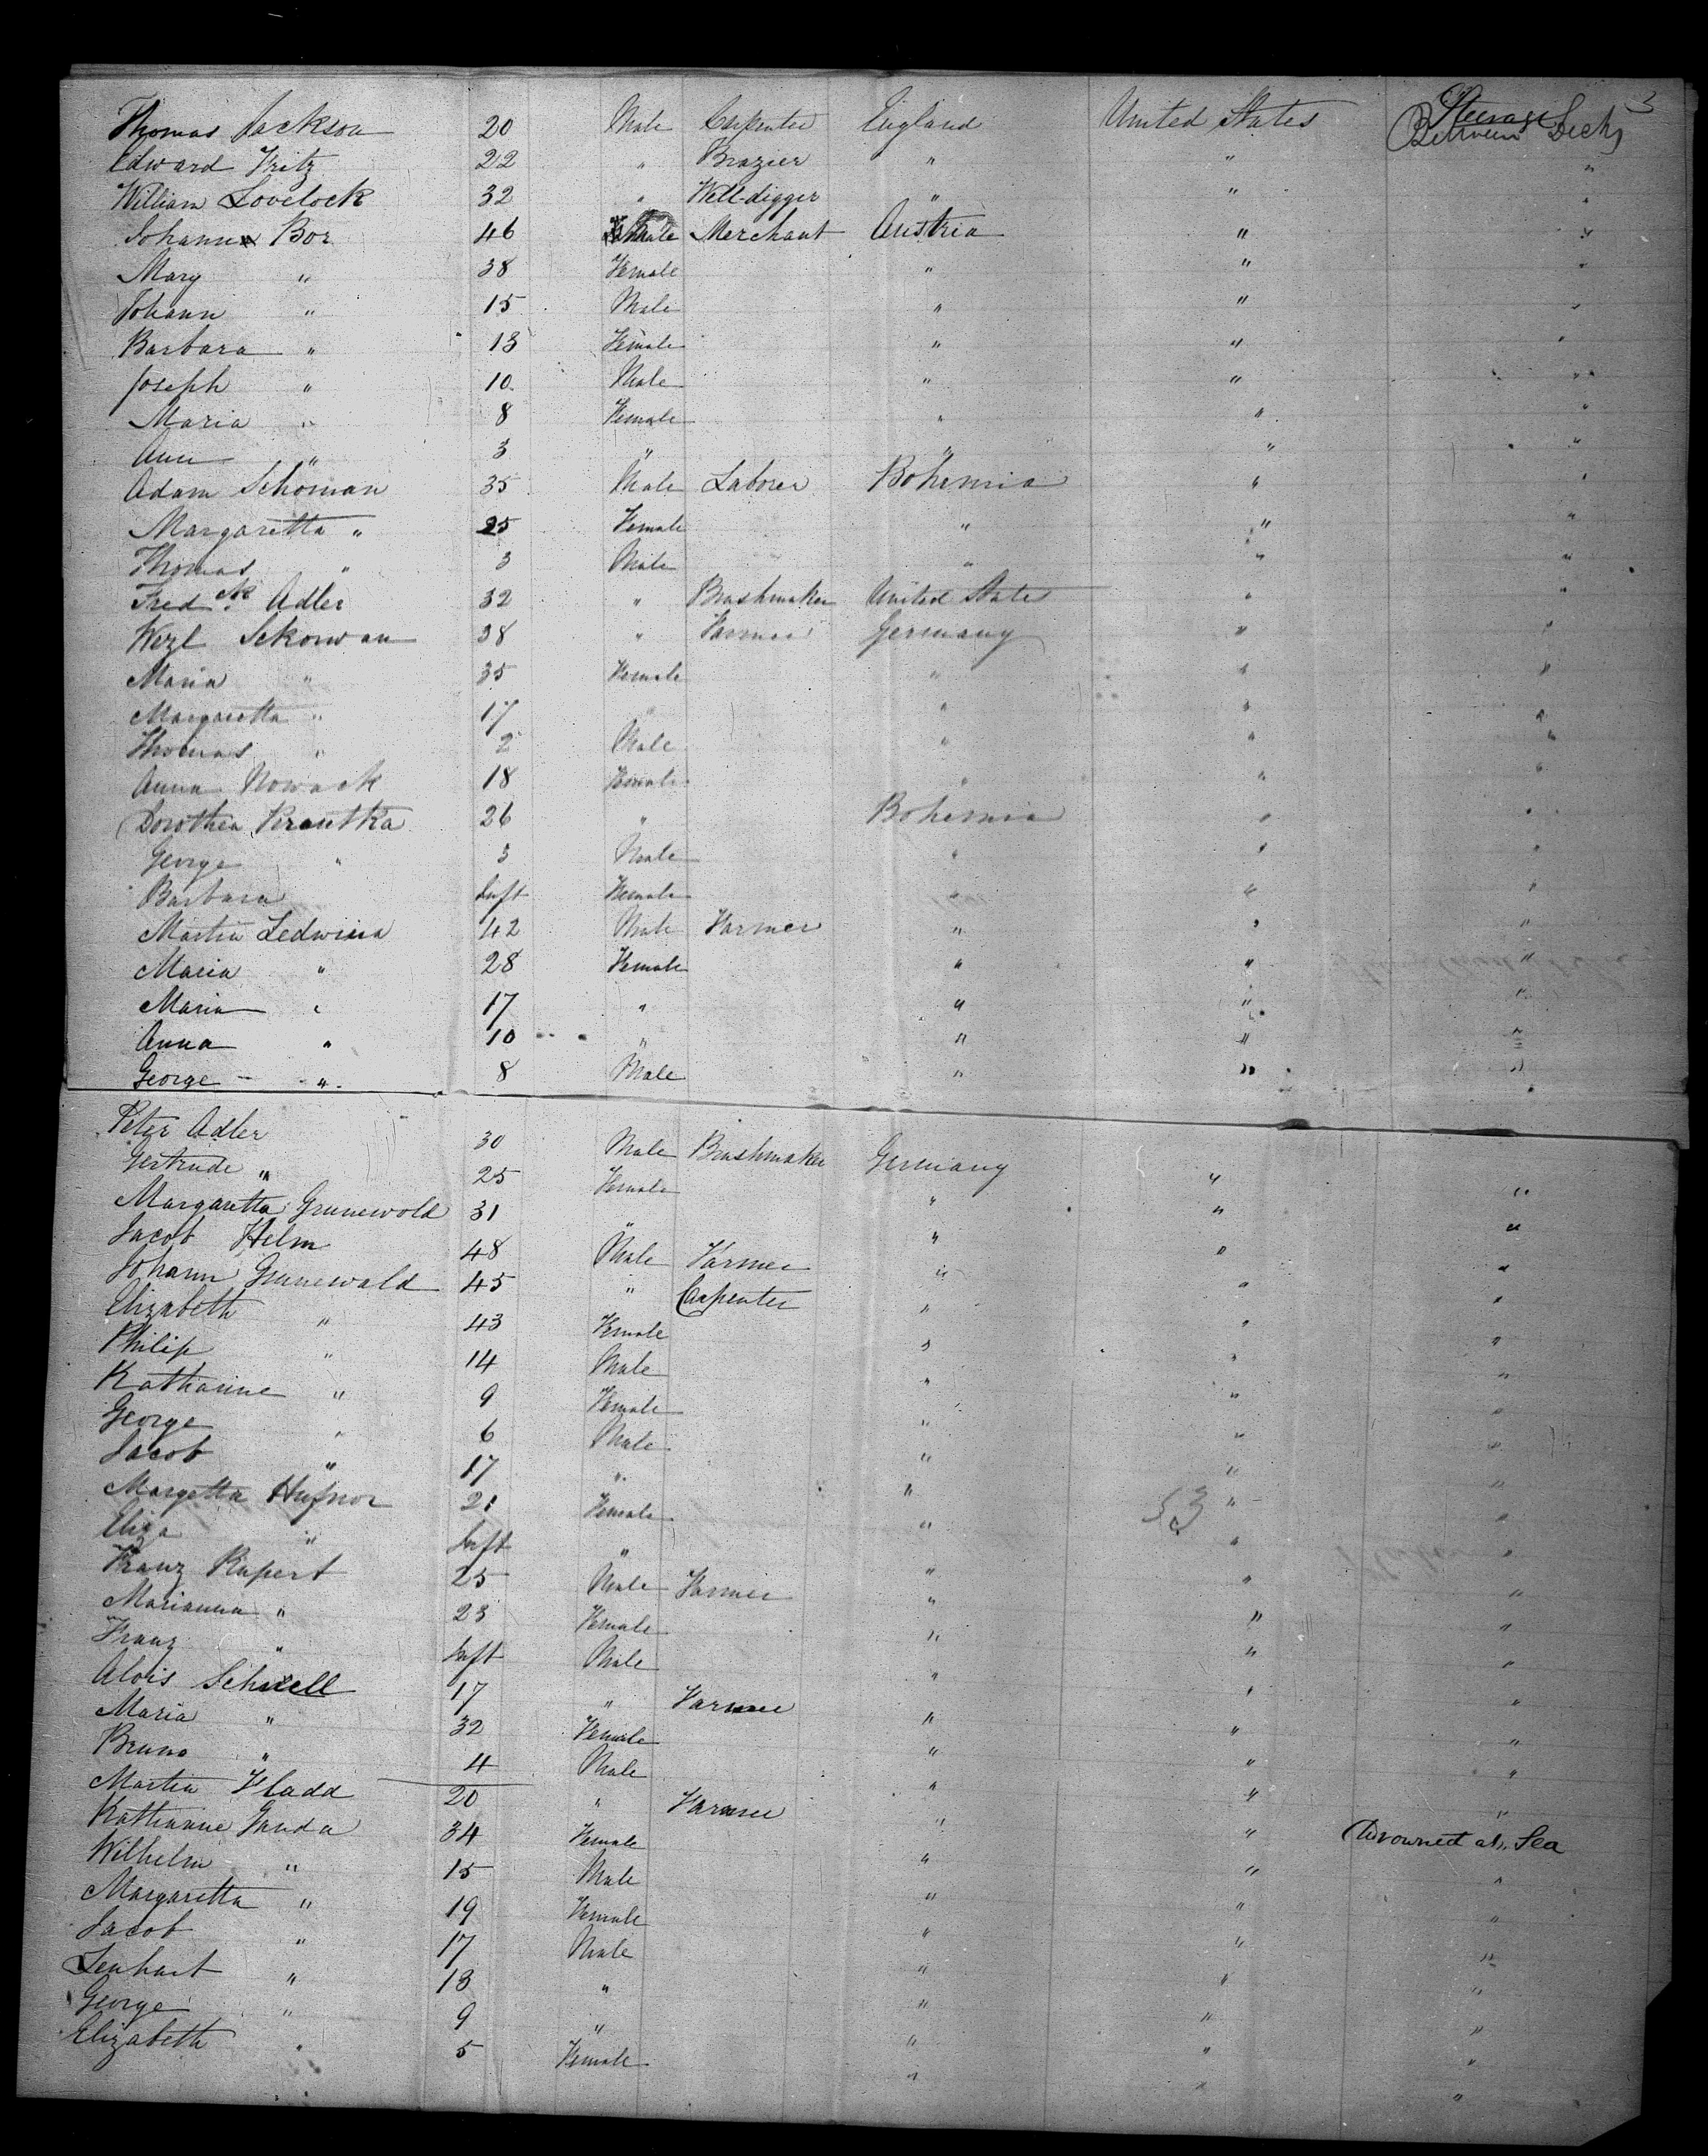 3
Thomas Jackson 20 Male Carpenter England United States Steerage Between Decks
Edward Fritz 22 " Brazier " " "
William Lovelock 32 " Well-digger " " "
Johann Bor 46 Male Merchant Austria " "
Mary " 38 Female " " "
Johann " 15 Male " " "
Barbara " 13 Female " " "
Joseph " 10 Male " " "
Maria " 8 Female " " "
Ann " 3 " " " "
Adam Schoman 35 Male Laborer Bohemia " "
Margaretta " 25 Female " " "
Thomas " 3 Male " " "
Fredck Adler 32 " Brushmaker United States " "
Wezl Sekorwan 38 " Farmer Germany " "
Maria " 35 Female " " "
Margaretta " 17 " " "
Thomas " 2 Male " " "
Anna Nowack 18 Female " " "
Dorothea Kroutka 26 " Bohemia " "
George " 3 Male " " "
Barbara Inft Female " " "
Martin Ledwina 42 Male Farmer " " "
Maria " 28 Female " " "
Maria " 17 " " " "
Anna " 10 " " " "
George " 8 Male " " "
Peter Adler 30 Male Brushmaker Germany " "
Gertrude " 25 Female " " "
Margaretta Grunewold 31 " " " "
Jacob Helm 48 Male Farmer " " "
Johann Grunewald 45 " Carpenter " " "
Elizabeth " 43 Female " " "
Philip " 14 Male " " "
Katharine " 9 Female " " "
George " 6 Male " " "
Jacob " 17 " " " "
Margetta Hufnor 21 Female " " "
53
Eliza " Inft " " " "
Franz Rupert 25 Male Farmer " " "
Marianna " 23 Female " " "
Franz " Inft Male " " "
Alois Schnell 17 " Farmer " " "
Maria " 32 Female " " "
Bruno " 4 Male " " "
Martin Fladd 20 " Farmer " " " Drowned at Sea
Katharine Janda 34 Female " " "
Wilhelm " 15 Male " " "
Margaretta " 19 Female " " "
Jacob " 17 Male " " "
Lenhart " 13 " " " "
George " 9 " " " "
Elizabeth " 5 Female " " "